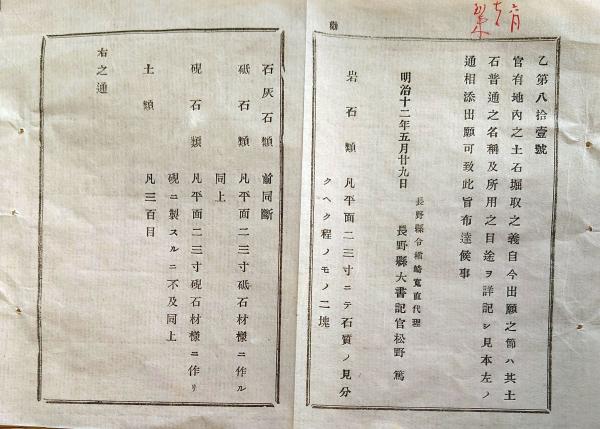 乙第八拾壹號
官有地內之土石堀取之義自今出願之節ハ其土
石普通之名稱及所用之目途ヲ詳記シ見本左ノ
通相添出願可致此旨布達候事
明治十二年五月廿九日
長野縣令楢崎寬直代理
長野縣大書記官松野篤
岩石類 凡平面二三寸ニテ石質ノ見分
クヘク程ノモノ二塊
石灰石類 前同斷
砥石類 凡平面二三寸砥石材樣ニ作ル
同上
硯石類 凡平面二三寸硯石材樣ニ作リ
硯ニ製スルニ不及同上
土類 凡三百目
右之通